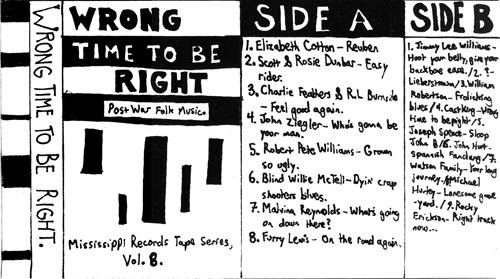 WRONG TIME TO BE RIGHT.
WRONG
TIME TO BE
RIGHT
Post War Folk Music.
Mississippi Records Tape Series,
Vol. 8.
SIDE A
1. Elizabeth Cotton - Reuben
2. Scott & Rosie Dunbar - Easy
rider.
3. Charlie Feathers & R.L Burnside
- Feel good again.
4. John Ziegler - Who's gonna be
your man.
5. Robert Pete Williams - Grown
so ugly.
6. Blind Willie McTell - Dyin' crap
shooters blues.
7. Malvina Reynolds - What's going
on down there?
8. Furry Lewis - On the road again.
SIDE B
1. Jimmy Lee Williams -
Hoot your belly, give your
backbone ease. /2. ? -
/3. William
Robertson - Frolicking
blues /4. Cast King - Wrong
time to be right /5.
Joseph Spence - Sloop
John B /6. John Hurt -
Spanish Fandang. /7.
Watson Family - Your long
journey. /8. Michael
Hurley - Lonesome grave
-yard. /9. Rocky
Erickson - Right track
now...